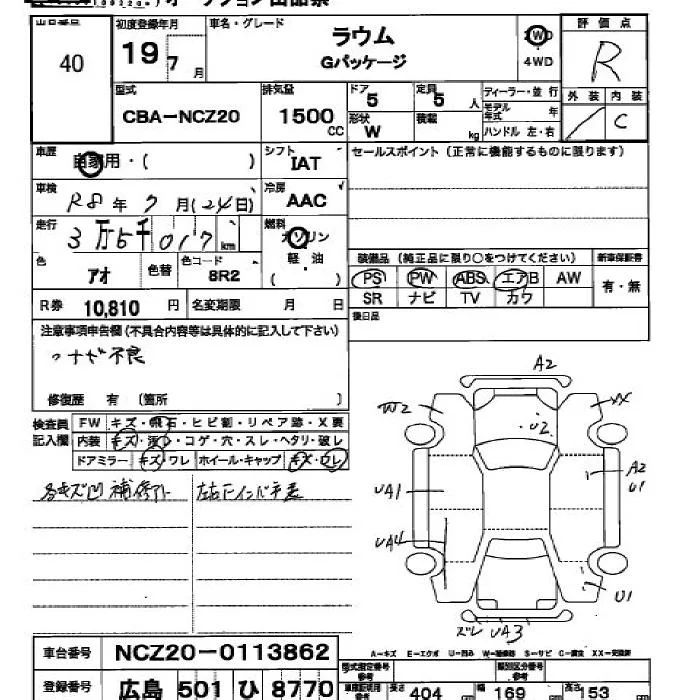 オークション出品票
出品番号 初度登録年月 車名・グレード 2WD 評価点
40 19 7月 ラウム 4WD R
Gパッケージ
型式 排気量 ドア 定員 ディーラー・並行 外装 内装
CBA-NCZ20 1500CC 5 5人 モデル年式 年 C
形状 W 積載 kg ハンドル 左・右
車歴 自家用・( ) シフト IAT セールスポイント(正常に機能するものに限ります)
車検 R8年7月(24日) 冷房 AAC
走行 3万5千017km 燃料 ガソリン
軽・油
( )
色 アオ 色替 色コード 8R2 装備品(純正品に限り○をつけてください) 新車保証書
PS PW ABS エアB AW 有・無
SR ナビ TV カワ
R券 10,810円 名変期限 月 日 後日品
注意事項申告欄(不具合内容等は具体的に記入して下さい)
ナビ不良
修復歴 有 (箇所 )
検査員記入欄 FW キズ・飛石・ヒビ割・リペア跡・X要
内装 キズ・汚レ・コゲ・穴・スレ・ヘタリ・破レ
ドアミラー キズ・ワレ ホイール・キャップ キズ・ワレ
各キズ凹 補修アト
A2
W2
XX
U2
UA1
A2
U1
UA4
U1
ズレ UA3
車台番号 NCZ20-0113862
A-キズ E-エクボ U-凹み W-補修跡 S-サビ C-腐食 XX-交換済
登録番号 広島 501 ひ 8770
型式指定番号 参考 類別区分番号 参考
長さ 404 幅 169 高さ 153